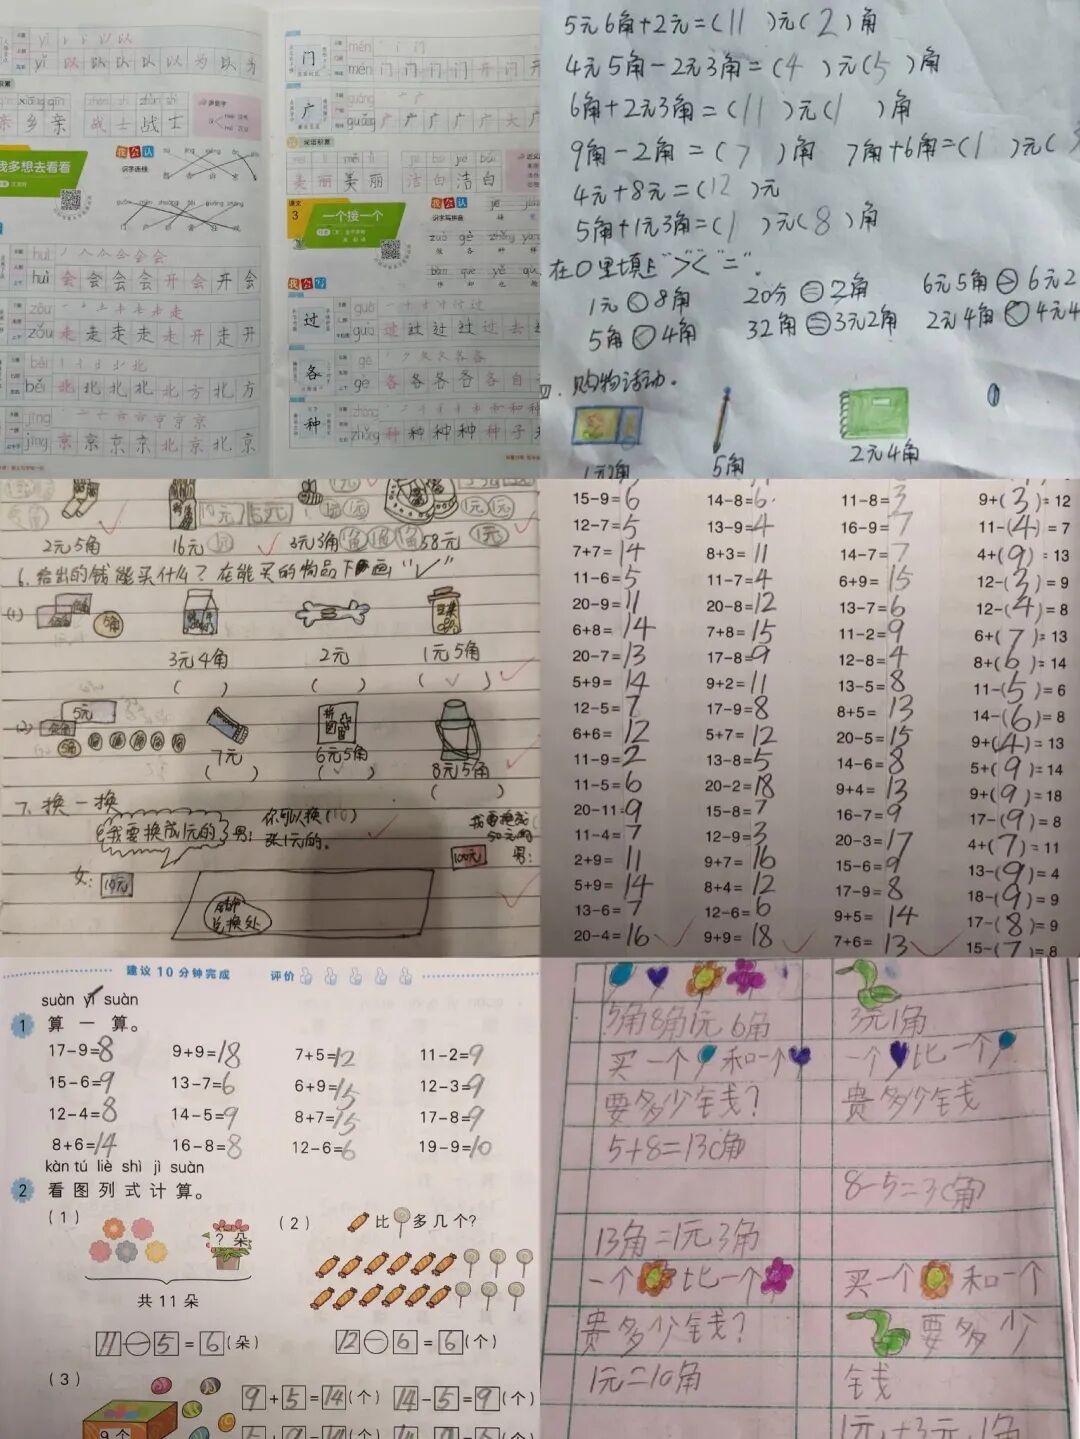 yǐ 以
yǐ 以 以 以 以 以 为 以 为
xiāng qīn zhàn shì zhàn shì
亲 乡 亲 战 士 战 士
我多想去看看
我会认
识字连线
huì 会
huì 会 会 会 会 会 开 会 开 会
zǒu 走
zǒu 走 走 走 走 走 走 开 走 开
běi 北
běi 北 北 北 北 北 北 方 北 方
jīng 京
jīng 京 京 京 京 北 京 北 京
门 mén 门
mén 门 门 门 门 门 开 门 开
广 guǎng 广
guǎng 广 广 广 广 广 大 广
词语积累
měi lì měi lì jié bái jié bái
美 丽 美 丽 洁 白 洁 白
课文 3 一个接一个
我会认
识字写拼音
zuò gè zhǒng yàng
做 各 种 样
我会写
过 guò 过
guò 过 过 过 过 过 去
各 gè 各
gè 各 各 各 各 各 自
种 zhǒng 种
zhǒng 种 种 种 种 种 子
5元6角+2元=(11)元(2)角
4元5角-2元3角=(4)元(5)角
6角+2元3角=(11)元(1)角
9角-2角=(7)角 7角+6角=(1)元(
4元+8元=(12)元
5角+1元3角=(1)元(8)角
在○里填上">""<""="。
1元 8角 20分=2角 6元5角 6元2
5角 4角 32角=3元2角 2元4角 4元4
四.购物活动。
1元2角 5角 2元4角
2元5角 16元 3元3角 58元
6.给出的钱能买什么?在能买的物品下画"√"
(1)
5角
3元4角 2元 1元5角
( ) ( ) (√)
(2) 5元
7元 6元5角 8元5角
( ) (√) ( )
7.换一换
我要换成1元的 男:你可以换(10)张1元的。
我要换成50元的
女: 10元 100元 男:
兑换处
15-9=6 14-8=6 11-8=3 9+(3)=12
12-7=5 13-9=4 16-9=7 11-(4)=7
7+7=14 8+3=11 14-7=7 4+(9)=13
11-6=5 11-7=4 6+9=15 12-(3)=9
20-9=11 20-8=12 13-7=6 12-(4)=8
6+8=14 7+8=15 11-2=9 6+(7)=13
20-7=13 17-8=9 12-8=4 8+(6)=14
5+9=14 9+2=11 13-5=8 11-(5)=6
12-5=7 17-9=8 8+5=13 14-(6)=8
6+6=12 5+7=12 20-5=15 9+(4)=13
11-9=2 13-8=5 14-6=8 5+(9)=14
11-5=6 20-2=18 9+4=13 9+(9)=18
20-11=9 15-8=7 16-7=9 17-(9)=8
11-4=7 12-9=3 20-3=17 4+(7)=11
2+9=11 9+7=16 15-6=9 13-(9)=4
5+9=14 8+4=12 17-9=8 18-(9)=9
13-6=7 12-6=6 9+5=14 17-(8)=9
20-4=16 9+9=18 7+6=13 15-(7)=8
建议10分钟完成 评价
suàn yī suàn
1 算一算。
17-9=8 9+9=18 7+5=12 11-2=9
15-6=9 13-7=6 6+9=15 12-3=9
12-4=8 14-5=9 8+7=15 17-8=9
8+6=14 16-8=8 12-6=6 19-9=10
kàn tú liè shì jì suàn
2 看图列式计算。
(1) (2) 比 多几个?
?朵
共11朵
11-5=6(朵) 12-6=6(个)
(3)
9+5=14(个) 14-5=9(个)
9个 5+9=14(个) 14-9=5(个)
5角8角1元6角 3元1角
买一个 和一个 一个 比一个
要多少钱? 贵多少钱
5+8=13(角)
8-5=3(角)
13角=1元3角
一个 比一个 买一个 和一个
贵多少钱? 要多少
1元=10角 钱
1元+3元1角